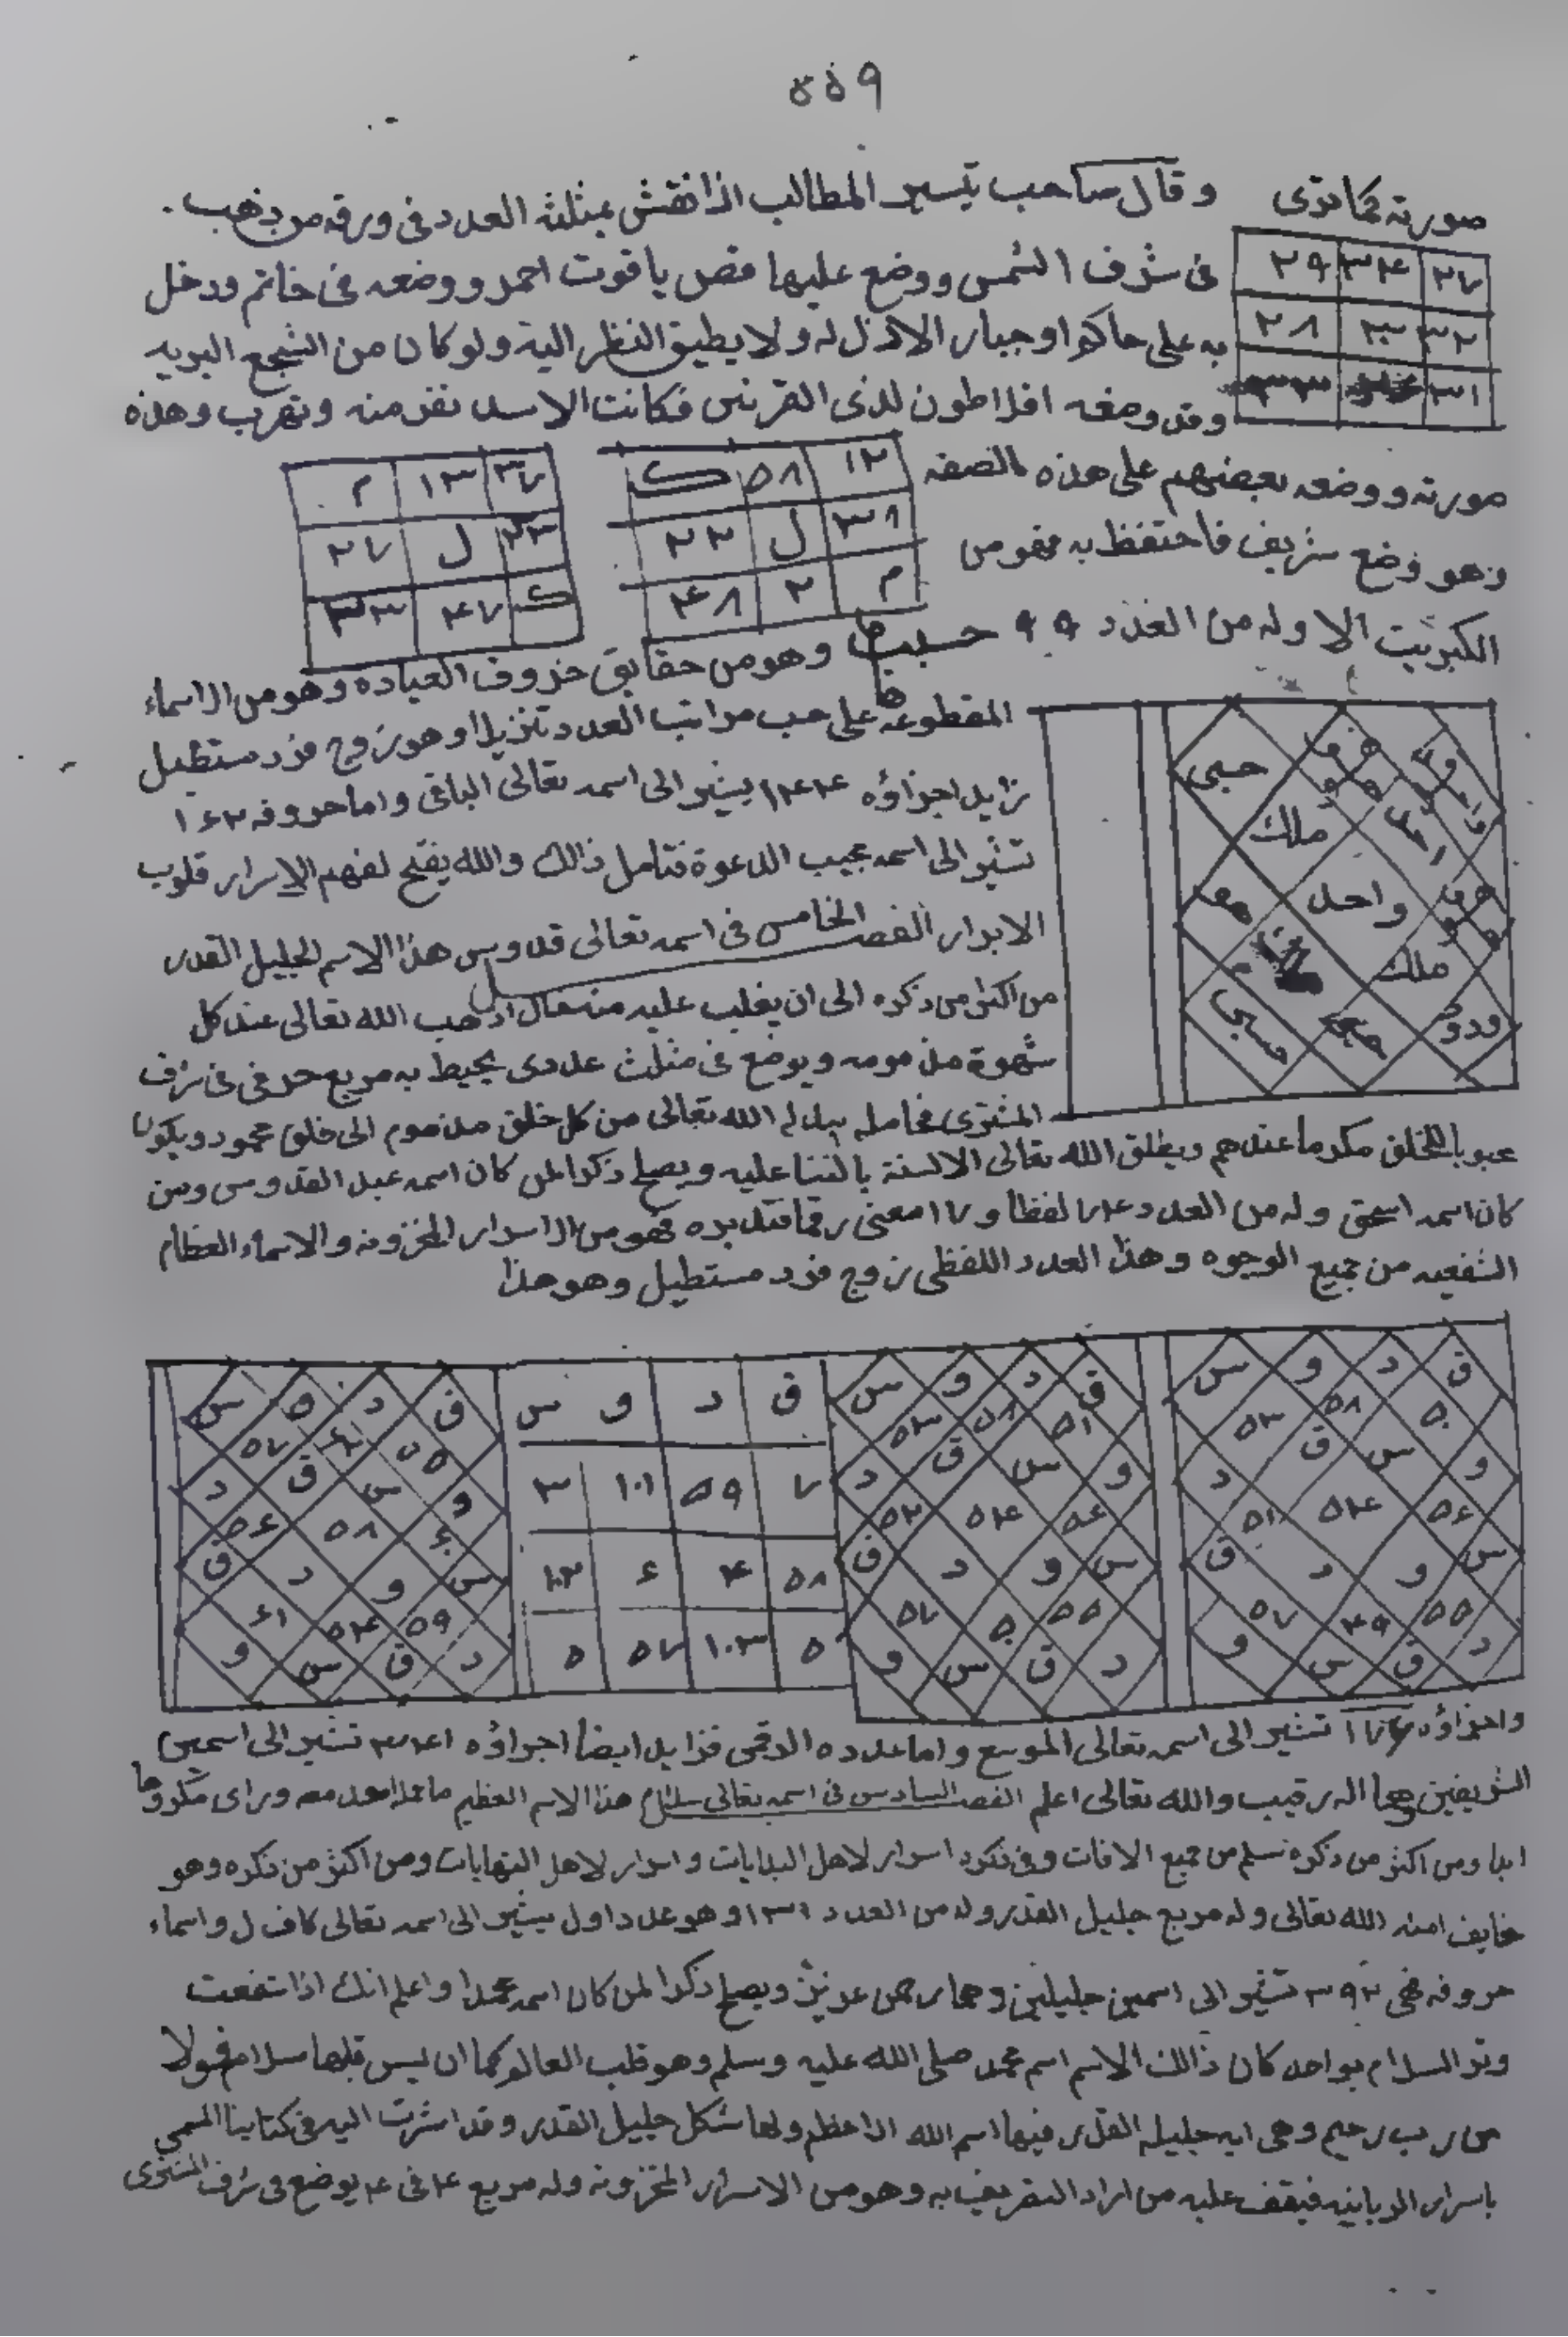 ٥٥٩
صورته كما ترى وقال صاحب تيسير المطالب اذا نقش بمثلثه العدد فى ورقه من ذهب
٢٧ ٣٤ ٢٩ فى شرف الشمس ووضع عليها فص ياقوت احمر ووضعه فى خاتم ودخل
٣٢ ٣٠ ٢٨ به على حاكم او جبار الا ذل له ولا يطيق النظر اليه ولو كان من اشجع البريه
٣١ ٣٣ وقد وضعه افلاطون لذى القرنين فكانت الاسد تفر منه وتهرب وهذه
صورته ووضعه بعضهم على هذه الصفه
١٢ ٥٨ ك
٣٨ ل ٢٢
م ٢ ٤٨
٣٧ ١٣ م
٢٣ ل ٢٧
ك ٤٧ ٣٣
وهو وضع شريف فاحتفظ به فهو من
الكبريت الا وله من العدد ٩٩ وهو من حقايق حروف العباده وهو من الاسماء
المقطوعه على حب مراتب العدد تنزيلا وهو زوج فرد مستطيل
زايد اجزاؤه ١٤٤ يشير الى اسمه تعالى الباقى واما حروفه ١٦٢
تشير الى اسمه مجيب الدعوة فتامل ذالك والله يفتح لفهم الاسرار قلوب
الابرار الفصل الخامس فى اسمه تعالى قدوس هذا الاسم الجليل القدر
من اكثر من ذكره الى ان يغلب عليه منه حال اذهب الله تعالى عنه كل
شهوة مذمومه ويوضع فى مثلث عددى يحيط به مربع حرفى فى شرف
المشترى فحامله يبدل له الله تعالى من كل خلق مذموم الى خلق محمود ويكون
حبى
ملك
واحد
ملك
ودود
محبوبا للخلق مكرما عندهم ويطلق الله تعالى الالسنة بالثنا عليه ويصلح ذكرا لمن كان اسمه عبد القدوس ومن
كان اسمه اسحق وله من العدد لفظا و ١٧٠ معنى رقما فتدبره فهو من الاسرار المخزونه والاسماء العظام
الشفعيه من جميع الوجوه وهذا العدد اللفظى زوج فرد مستطيل وهو هذا
ق د و س
٥٠ ٥٨ ٥٣
و س ق د
٥٦ ٥٤ ٥١
س و د ق
٥٥ ٤٩ ٥٧
د ق س و
ق د و س
٥١ ٥٨ ٥٣
و س ق د
٥٦ ٥٤ ٥٢
س و د ق
٥٥ ٥٠ ٥٧
د ق س و
ق د و س
٧ ٥٩ ١٠١ ٣
٥٨ ٤ ٦ ١٠٢
٥ ١٠٣ ٥٧ ٥
ق د و س
٥٥ ٥٧
و س ق د
٦٠ ٥٨ ٥٦
س و د ق
٥٩ ٥٤ ٦١
د ق س و
واجزاؤه ١٧٦ تشير الى اسمه تعالى الموسع واما عدده الرقمى فزايد ايضا اجزاؤه تشير الى اسمين
الشريفين وهما اله رقيب والله تعالى اعلم الفصل السادس فى اسمه تعالى سلام هذا الاسم العظيم ما وراى مكروها
ابدا ومن اكثر من ذكره سلم من جميع الافات وفى ذكره اسرار لاهل البدايات واسرار لاهل النهايات ومن اكثر من ذكره وهو
خايف امنه الله تعالى وله مربع جليل القدر وله من العدد ١٣١ وهو عدد اول يشير الى اسمه تعالى كاف ل واسماء
حروفه فهى ٣٩٢ تشير الى اسمين جليلين وهما رحمن عزيز ويصلح ذكرا لمن كان اسمه محمدا واعلم انك اذا شفعت
وتر السلام بواحد كان ذالك الاسم اسم محمد صلى الله عليه وسلم وهو قلب العالم كما ان يس قلبها سلام قولا
من رب رحيم وهى ايه جليله القدر فيها اسم الله الاعظم ولها شكل جليل القدر وقد اشرت اليه فى كتابنا المسمى
باسرار الربانيه فيقف عليه من اراد التصريف به وهو من الاسرار المخزونه وله مربع ٤ فى ٤ يوضع فى شرف المشترى